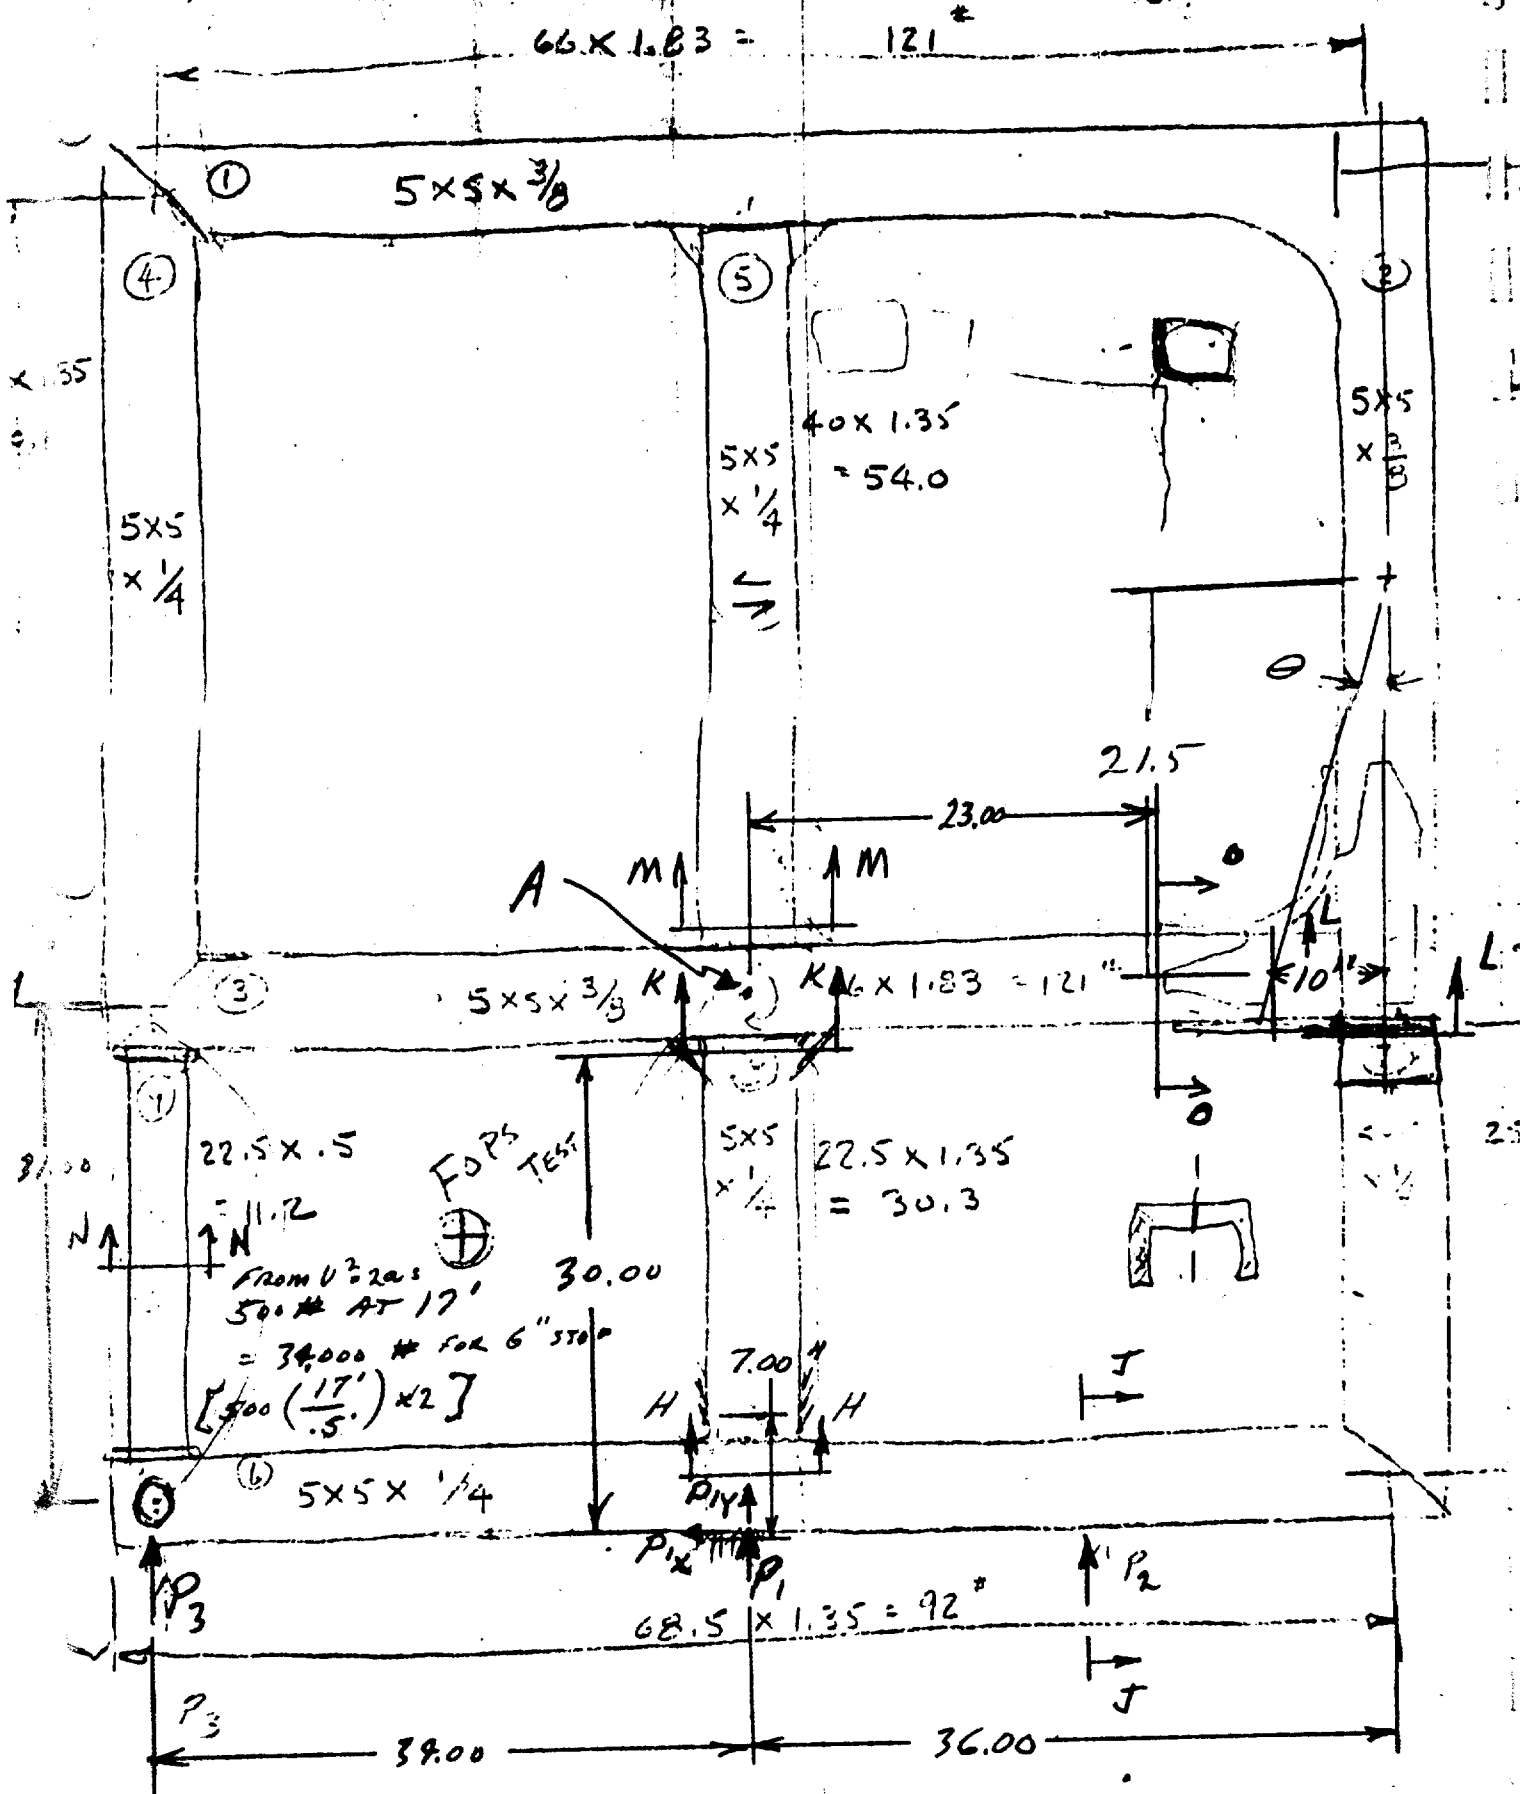 66 x 1.83 = 121 #
1
5 x 5 x 3/8
4
5
2
x 1.35
5x5
x 3/8
40 x 1.35
= 54.0
5x5
x 1/4
5x5
x 1/4
θ
21.5
23.00
A
M M
O
L
L
L
3
5 x 5 x 3/8
K K
6 x 1.83 = 121 "
10"
O
7
22.5 x .5
= 11.2
FOPS
TEST
5x5
x 1/4
22.5 x 1.35
= 30.3
N N
FROM V²=2as
500 # AT 17'
= 34,000 # FOR 6" STOP
[500 (17'/.5') x2]
30.00
7.00
H H
J
6
5 x 5 x 1/4
P1Y
P1X
P1
P2
P3
68.5 x 1.35 = 92 #
J
P3
34.00
36.00